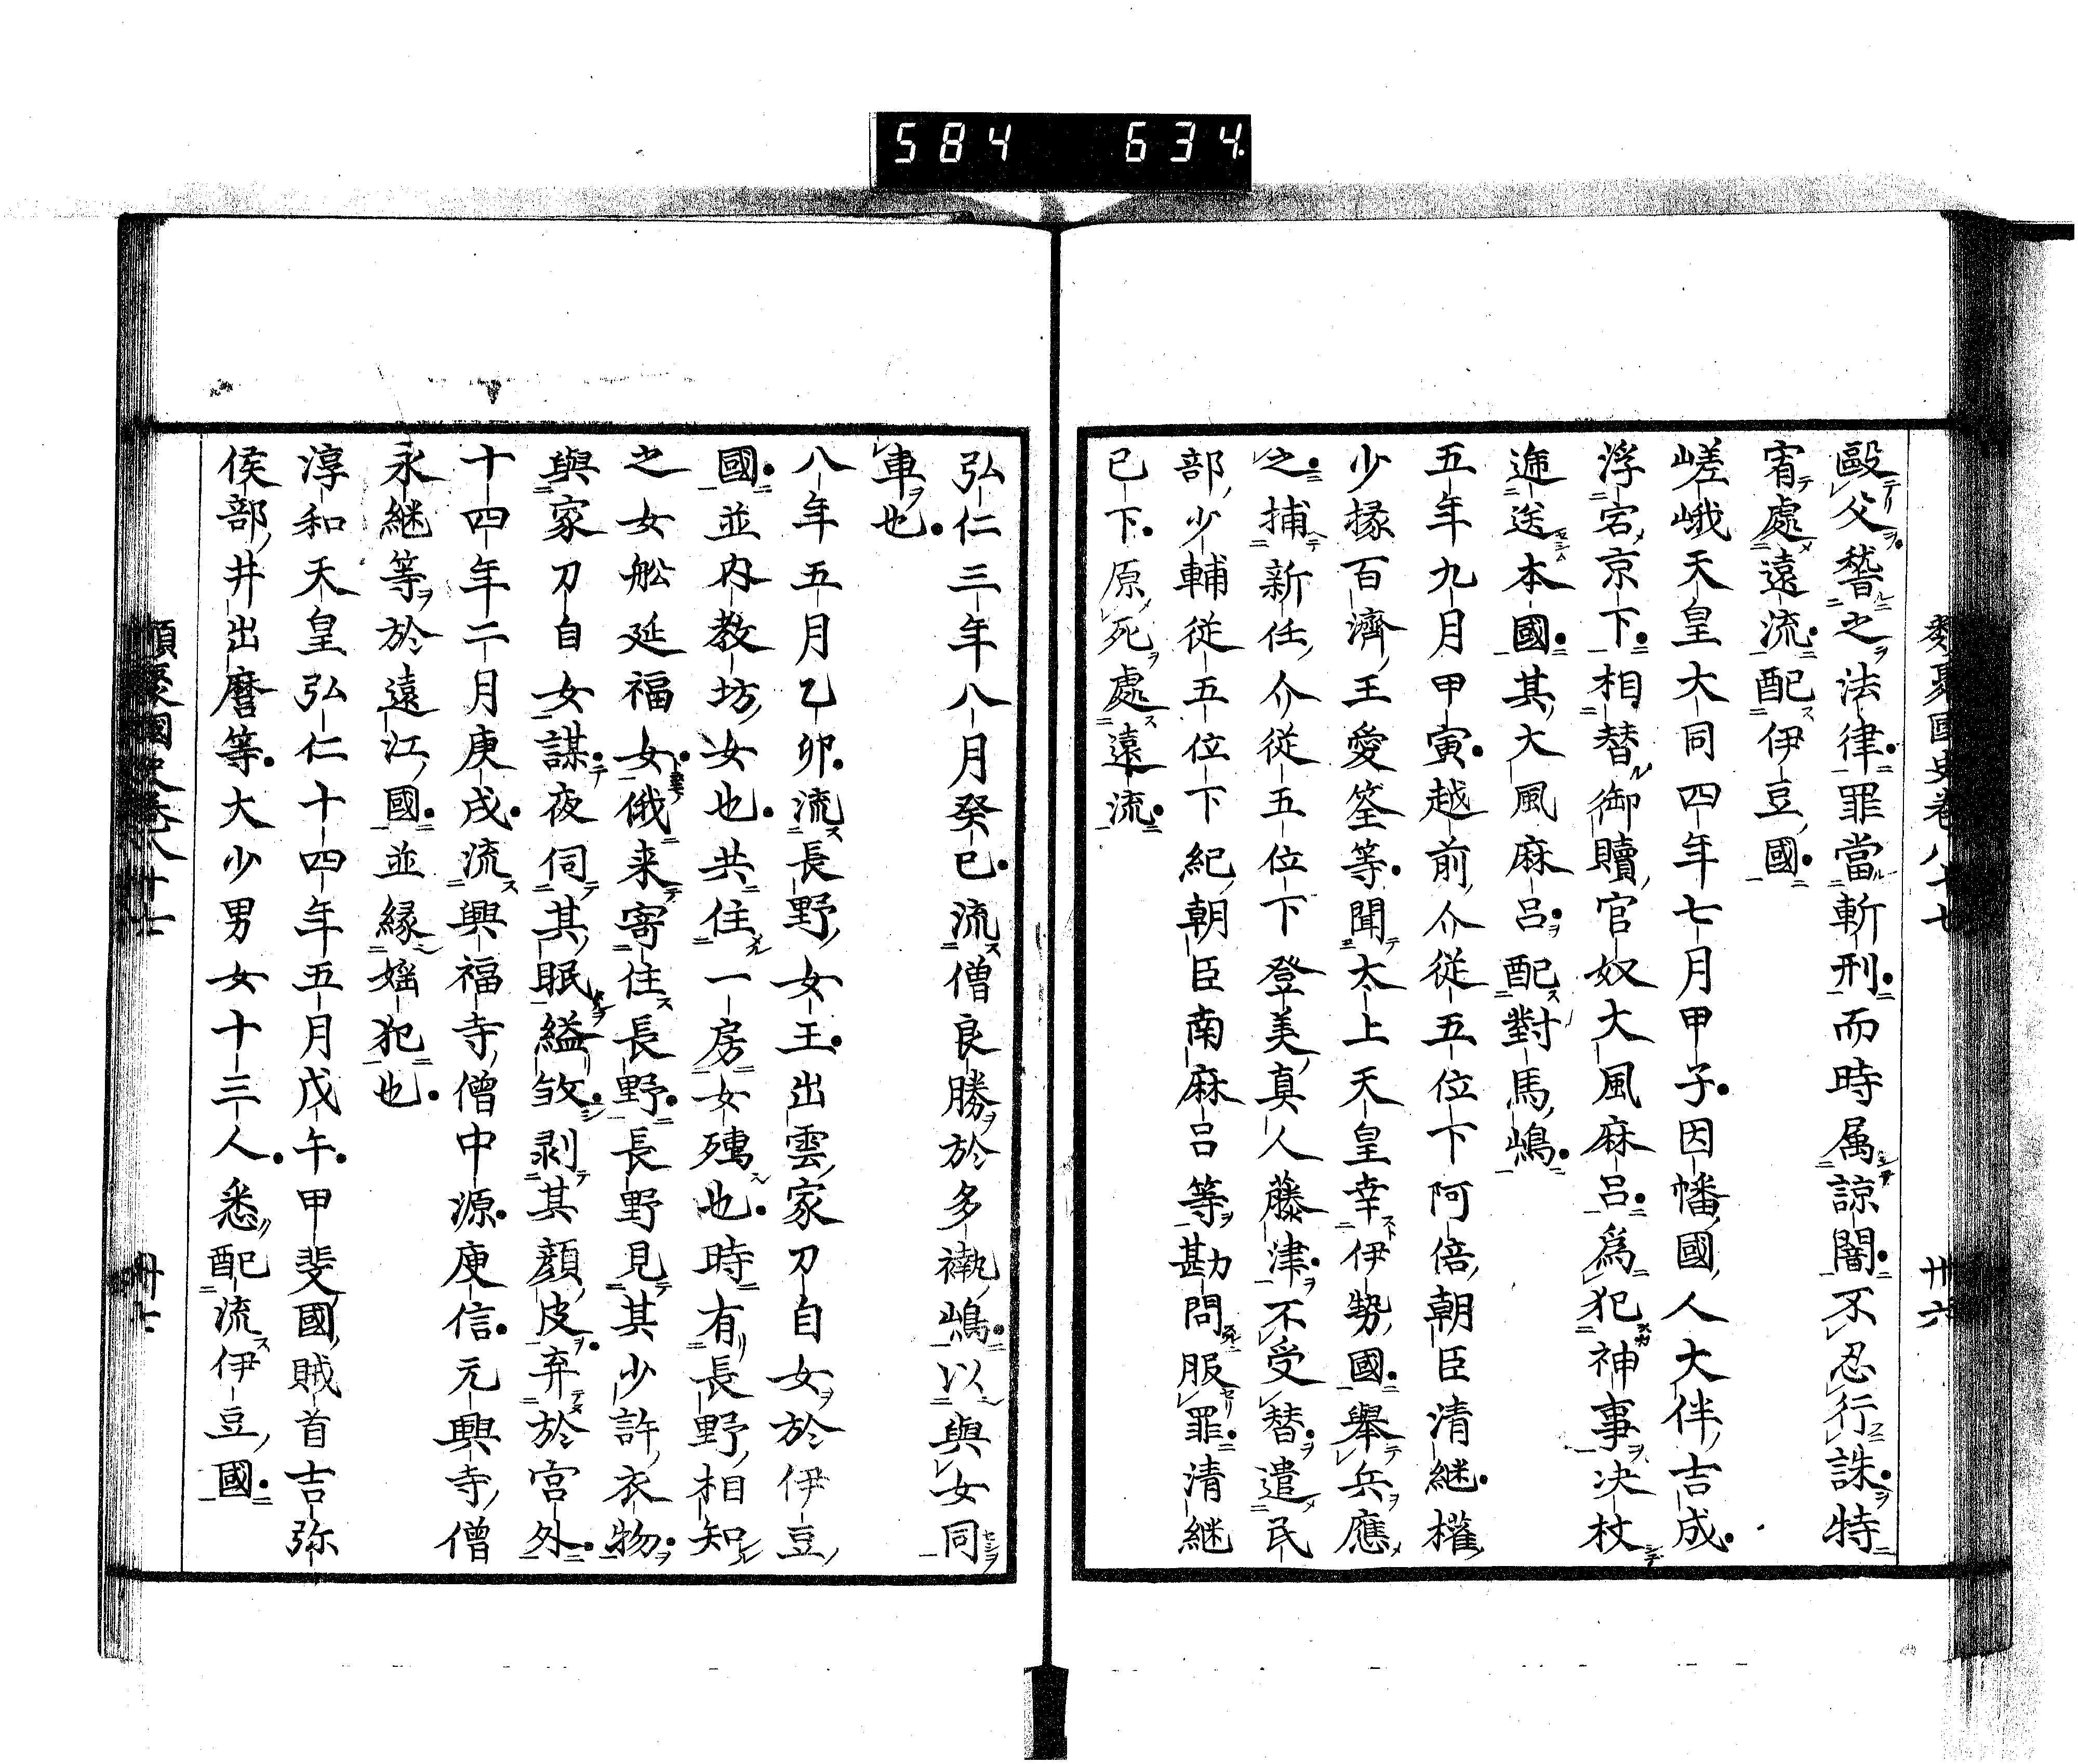 584 634
類聚國史卷八十七 卅六
毆父嫯之法律罪當斬刑而時属諒闇不忍行誅特
宥處遠流配伊豆國
嵯峨天皇大同四年七月甲子因幡國人大伴吉成
浮宕京下相替御贖官奴大風麻呂爲犯神事决杖
逓送本國其大風麻呂配對馬嶋
五年九月甲寅越前介從五位下阿倍朝臣清継權
少掾百濟王愛筌等聞太上天皇幸伊勢國舉兵應
之捕新任介從五位下登美真人藤津不受替遣民
部少輔從五位下紀朝臣南麻呂等勘問服罪清継
已下原死處遠流
弘仁三年八月癸巳流僧良勝於多褹嶋以與女同
車也
八年五月乙卯流長野女王出雲家刀自女於伊豆
國並内教坊女也共住一房女殪也時有長野相知
之女舩延福女俄来寄住長野長野見其少許衣物
與家刀自女謀夜伺其眠縊敓剥其顔皮弃於宮外
十四年二月庚戌流興福寺僧中源庚信元興寺僧
永継等於遠江國並縁婬犯也
淳和天皇弘仁十四年五月戊午甲斐國賊首吉弥
侯部井出麿等大少男女十三人悉配流伊豆國
類聚國史卷八十七 卅七